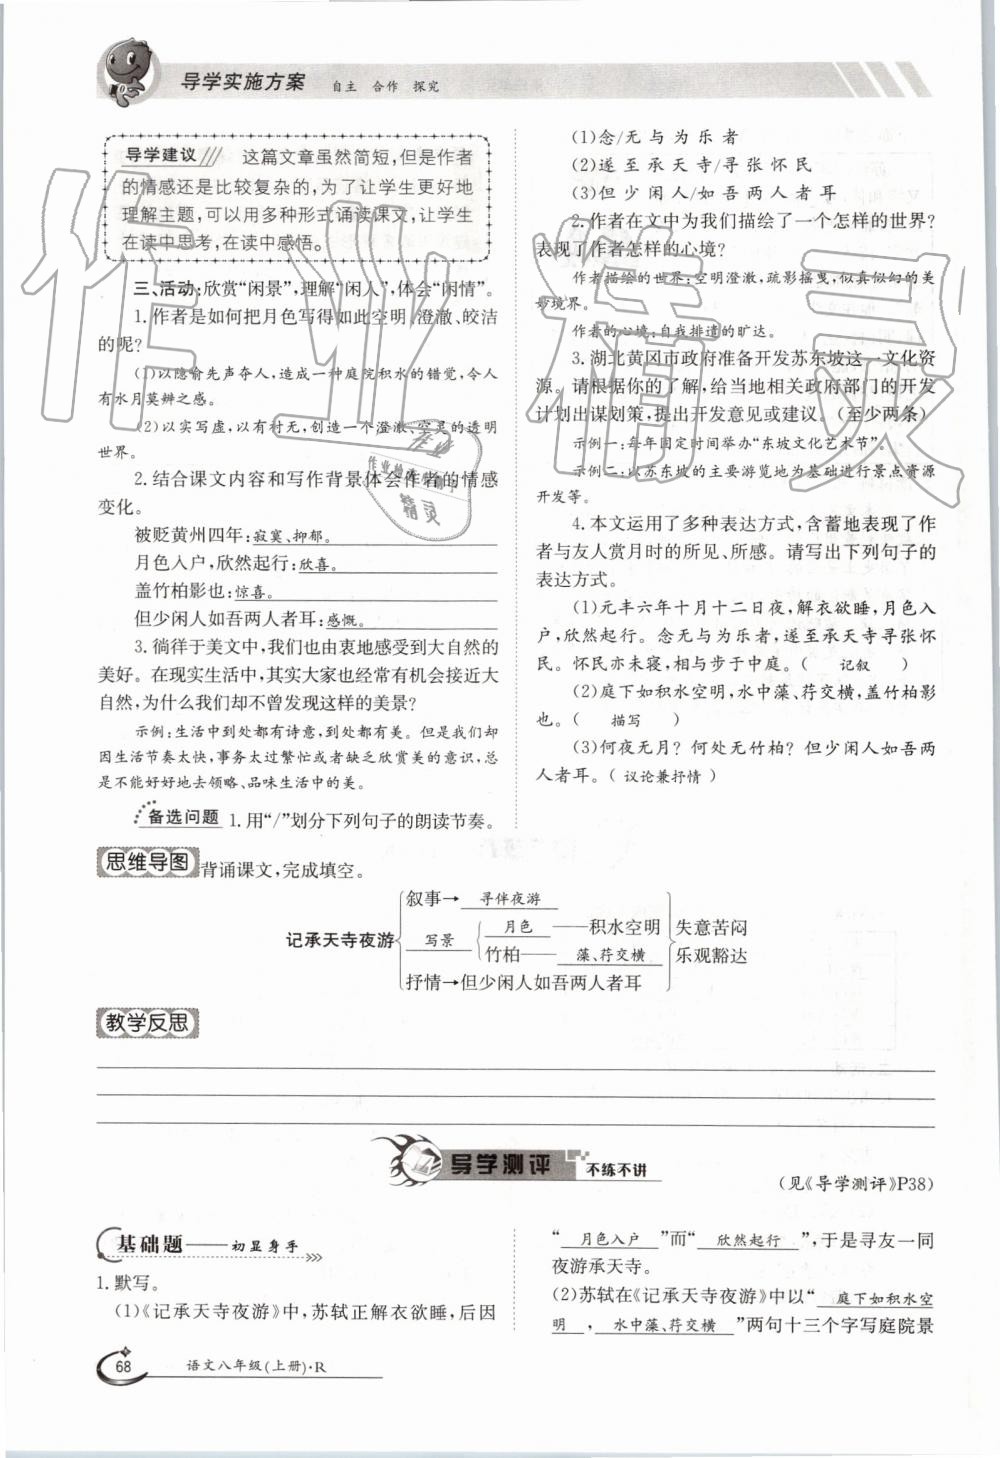 导学实施方案 自主 合作 探究
导学建议 这篇文章虽然简短,但是作者
的情感还是比较复杂的,为了让学生更好地
理解主题,可以用多种形式诵读课文,让学生
在读中思考,在读中感悟。
三、活动:欣赏“闲景”,理解“闲人”,体会“闲情”。
1.作者是如何把月色写得如此空明、澄澈、皎洁
的呢?
(1)以隐喻先声夺人,造成一种庭院积水的错觉,令人
有水月莫辨之感。
(2)以实写虚,以有衬无,创造一个澄澈、空灵的透明
世界。
2.结合课文内容和写作背景体会作者的情感
变化。
被贬黄州四年:寂寞、抑郁。
月色入户,欣然起行:欣喜。
盖竹柏影也:惊喜。
但少闲人如吾两人者耳:感慨。
3.徜徉于美文中,我们也由衷地感受到大自然的
美好。在现实生活中,其实大家也经常有机会接近大
自然,为什么我们却不曾发现这样的美景?
示例:生活中到处都有诗意,到处都有美。但是我们却
因生活节奏太快,事务太过繁忙或者缺乏欣赏美的意识,总
是不能好好地去领略、品味生活中的美。
备选问题 1.用“/”划分下列句子的朗读节奏。
(1)念/无与为乐者
(2)遂至承天寺/寻张怀民
(3)但少闲人/如吾两人者耳
2.作者在文中为我们描绘了一个怎样的世界?
表现了作者怎样的心境?
作者描绘的世界:空明澄澈,疏影摇曳,似真似幻的美
妙境界。
作者的心境:自我排遣的旷达。
3.湖北黄冈市政府准备开发苏东坡这一文化资
源。请根据你的了解,给当地相关政府部门的开发
计划出谋划策,提出开发意见或建议。(至少两条)
示例一:每年固定时间举办“东坡文化艺术节”。
示例二:以苏东坡的主要游览地为基础进行景点资源
开发等。
4.本文运用了多种表达方式,含蓄地表现了作
者与友人赏月时的所见、所感。请写出下列句子的
表达方式。
(1)元丰六年十月十二日夜,解衣欲睡,月色入
户,欣然起行。念无与为乐者,遂至承天寺寻张怀
民。怀民亦未寝,相与步于中庭。( 记叙 )
(2)庭下如积水空明,水中藻、荇交横,盖竹柏影
也。( 描写 )
(3)何夜无月?何处无竹柏?但少闲人如吾两
人者耳。( 议论兼抒情 )
思维导图 背诵课文,完成填空。
记承天寺夜游
叙事→ 寻伴夜游
写景
月色——积水空明
竹柏—— 藻、荇交横
抒情→但少闲人如吾两人者耳
失意苦闷
乐观豁达
教学反思
导学测评 不练不讲
(见《导学测评》P38)
基础题——初显身手
1.默写。
(1)《记承天寺夜游》中,苏轼正解衣欲睡,后因
“ 月色入户 ”而“ 欣然起行 ”,于是寻友一同
夜游承天寺。
(2)苏轼在《记承天寺夜游》中以“ 庭下如积水空
明 , 水中藻、荇交横 ”两句十三个字写庭院景
68 语文八年级(上册)·R
作业精灵
作业
精灵